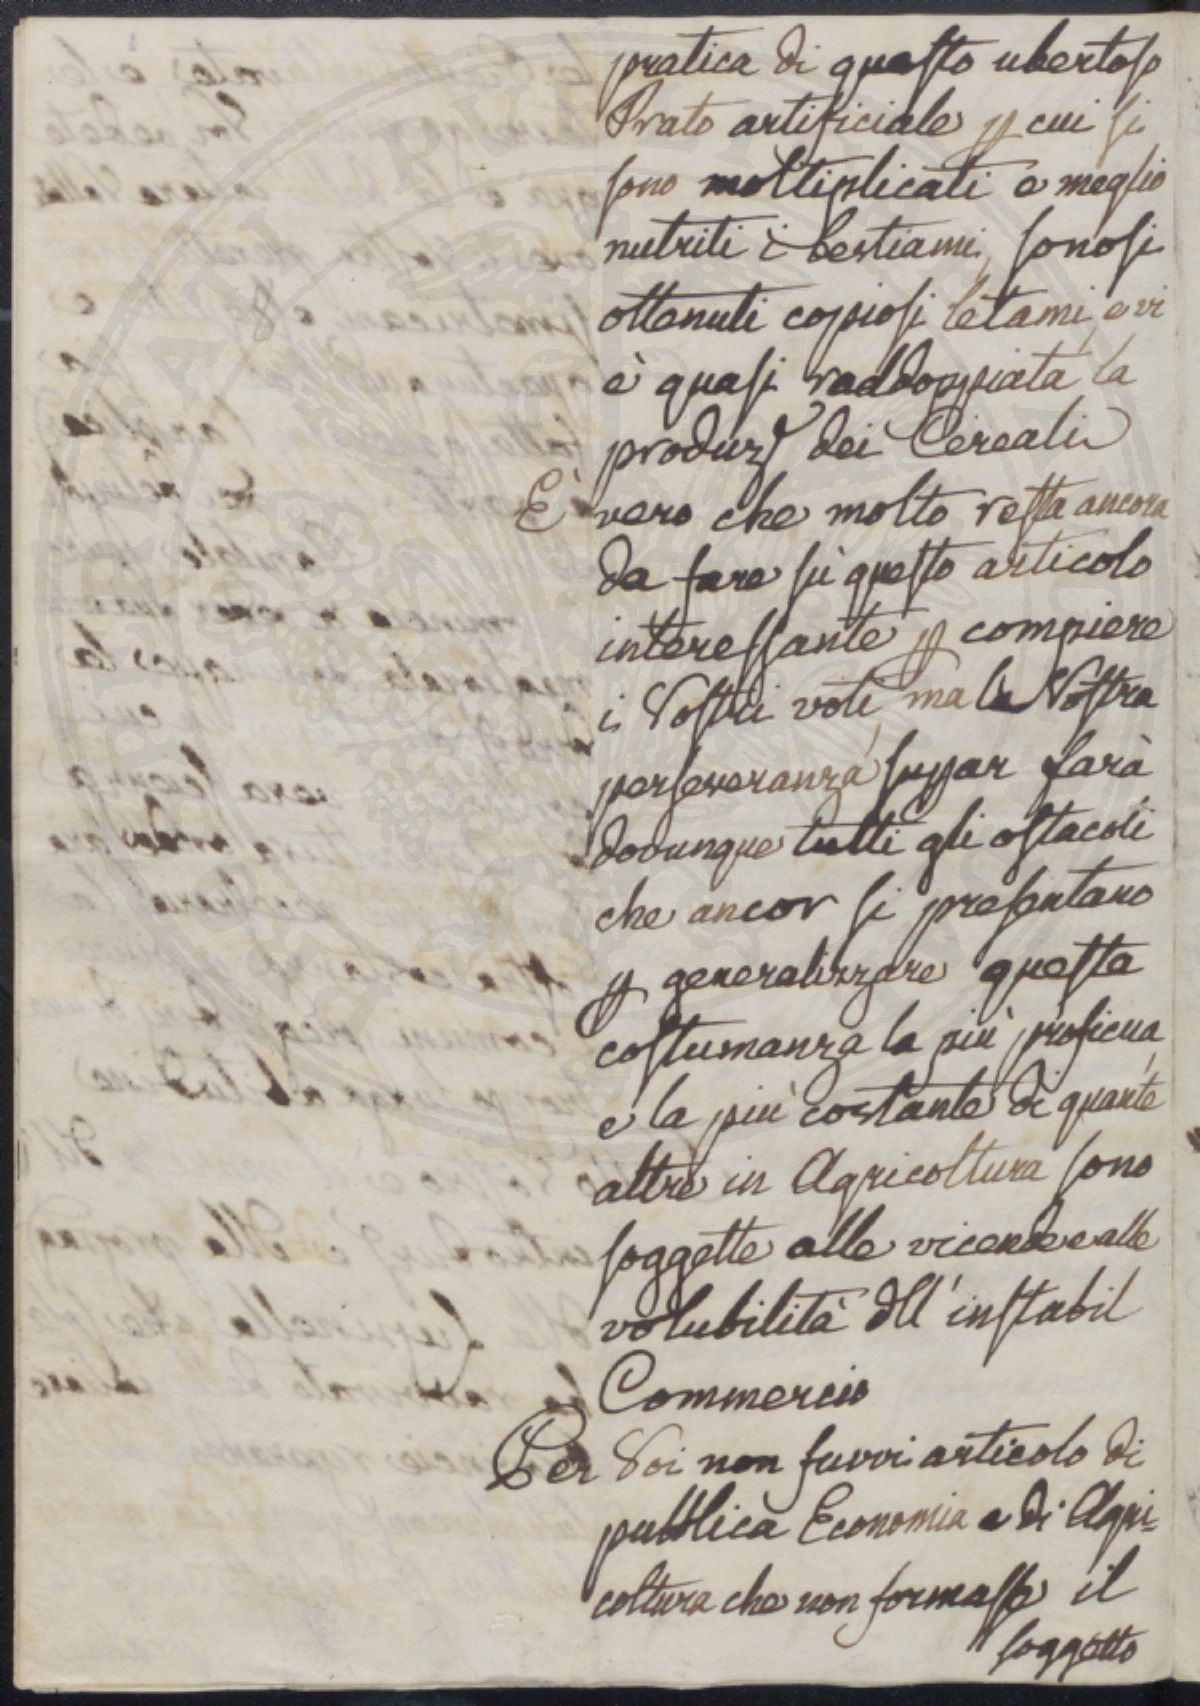 pratica di questo ubertoso
Prato artificiale p cui si
sono moltiplicati e meglio
nutriti i bestiami, sonosi
ottenuti copiosi letami, e vi
è quasi raddoppiata la
produz.e dei Cereali
È vero che molto resta ancora
da fare sù questo articolo
interessante p compiere
i Vostri voti ma la Vostra
perseveranza suppar farà
dovunque tutti gli ostacoli
che ancor si presentano
p generalizzare questa
costumanza la più proficua,
e la più costante di quante
altre in Agricoltura sono
soggette alle vicende e alle
volubilità dll' instabil
Commercio
Per Voi non fuvvi articolo di
pubblica Economia e di Agri=
coltura che non formasse il
soggetto